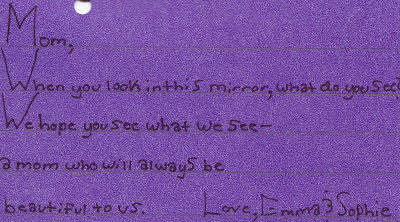 Mom,
When you look in this mirror, what do you see?
We hope you see what we see—
a mom who will always be
beautiful to us. Love, Emma & Sophie